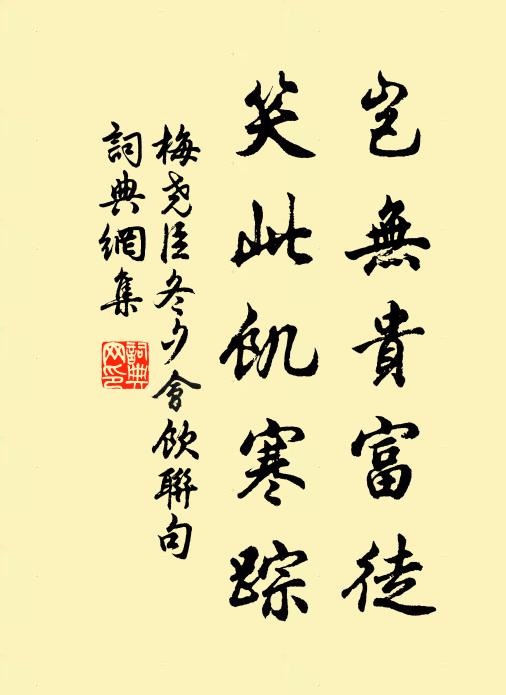 豈無貴富徒
笑此飢寒踪
梅尧臣冬夕會飲聯句
詞典網集
詞典网印